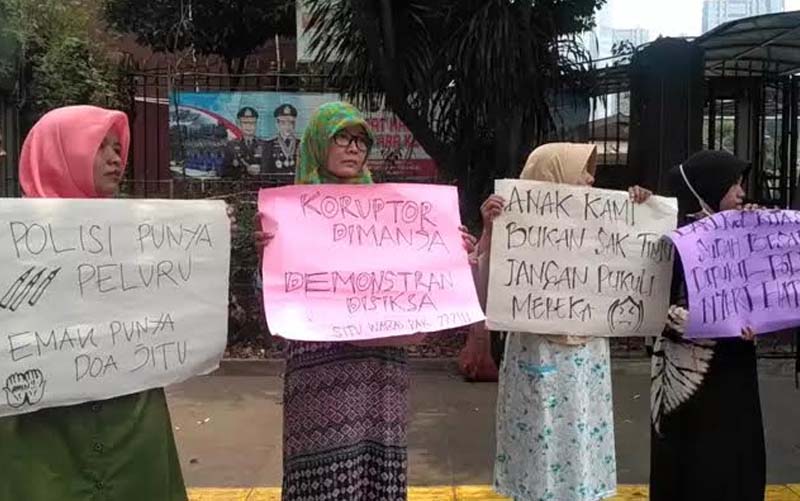 POLISI PUNYA
PELURU
EMAK PUNYA
DOA JITU
KORUPTOR
DIMANJA
DEMONSTRAN
DISIKSA
SITU WARAS PAK ???!!!
ANAK KAMI
BUKAN SAK TINJU
JANGAN PUKULI
MEREKA
SUDAH BESAR